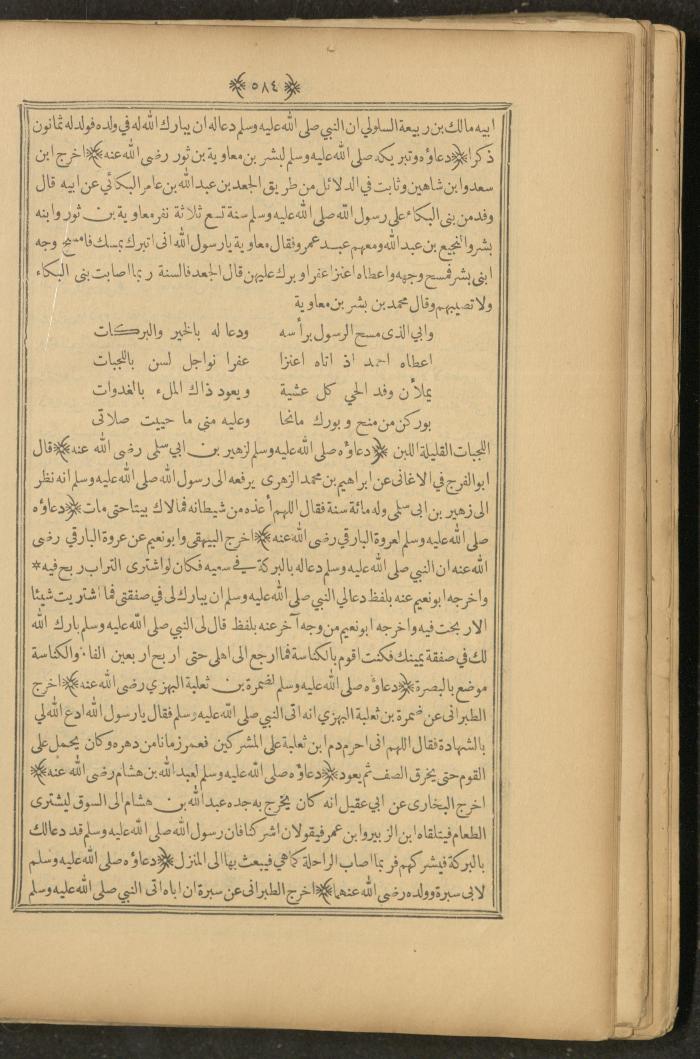 ﴿ ٥٨٤ ﴾
ابيه مالك بن ربيعة السلولي ان النبي صلى الله عليه وسلم دعا له ان يبارك الله له في ولده فولد له ثمانون
ذكرا ﴿ دعاؤه وتبريكه صلى الله عليه وسلم لبشر بن معاوية بن ثور رضى الله عنه ﴾ اخرج ابن
سعد وابن شاهين وثابت في الدلائل من طريق الجعد بن عبد الله بن عامر البكائي عن ابيه قال
وفد من بنى البكاء على رسول الله صلى الله عليه وسلم سنة تسع ثلاثة نفر معاوية بن ثور وابنه
بشر والفجيع بن عبد الله ومعهم عبد عمرو فقال معاوية يا رسول الله انى اتبرك بمسك فامسح وجه
ابنى بشر فمسح وجهه واعطاه اعنزا عفرا وبرك عليهن قال الجعد فالسنة ربما اصابت بنى البكاء
ولا تصيبهم وقال محمد بن بشر بن معاوية
وابي الذى مسح الرسول برأسه ودعا له بالخير والبركات
اعطاه احمد اذ اتاه اعنزا عفرا نواجل لسن باللجبات
يملأن وفد الحي كل عشية ويعود ذاك الملء بالغدوات
بوركن من منح وبورك مانحا وعليه منى ما حييت صلاتى
اللجبات القليلة اللبن ﴿ دعاؤه صلى الله عليه وسلم لزهير بن ابي سلمى رضى الله عنه ﴾ قال
ابو الفرج في الاغانى عن ابراهيم بن محمد الزهرى يرفعه الى رسول الله صلى الله عليه وسلم انه نظر
الى زهير بن ابى سلمى وله مائة سنة فقال اللهم أعذه من شيطانه فما لاك بيتا حتى مات ﴿ دعاؤه
صلى الله عليه وسلم لعروة البارقي رضى الله عنه ﴾ اخرج البيهقى وابو نعيم عن عروة البارقي رضى
الله عنه ان النبي صلى الله عليه وسلم دعا له بالبركة في سعيه فكان لو اشترى التراب ربح فيه *
واخرجه ابو نعيم عنه بلفظ دعا لي النبي صلى الله عليه وسلم ان يبارك لى في صفقتى فما اشتريت شيئا
الا ربحت فيه واخرجه ابو نعيم من وجه آخر عنه بلفظ قال لى النبي صلى الله عليه وسلم بارك الله
لك في صفقة يمينك فكنت اقوم بالكناسة فما ارجع الى اهلى حتى اربح اربعين الفا . والكناسة
موضع بالبصرة ﴿ دعاؤه صلى الله عليه وسلم لضمرة بن ثعلبة البهزي رضى الله عنه ﴾ اخرج
الطبرانى عن ضمرة بن ثعلبة البهزي انه اتى النبي صلى الله عليه وسلم فقال يا رسول الله ادع الله لي
بالشهادة فقال اللهم انى احرم دم ابن ثعلبة على المشركين فعمر زمانا من دهره وكان يحمل على
القوم حتى يخرق الصف ثم يعود ﴿ دعاؤه صلى الله عليه وسلم لعبد الله بن هشام رضى الله عنه ﴾
اخرج البخارى عن ابي عقيل انه كان يخرج به جده عبد الله بن هشام الى السوق ليشترى
الطعام فيتلقاه ابن الزبير وابن عمر فيقولان اشركنا فان رسول الله صلى الله عليه وسلم قد دعا لك
بالبركة فيشركهم فربما اصاب الراحلة كما هي فيبعث بها الى المنزل ﴿ دعاؤه صلى الله عليه وسلم
لابى سبرة وولده رضى الله عنهما ﴾ اخرج الطبرانى عن سبرة ان اباه اتى النبي صلى الله عليه وسلم